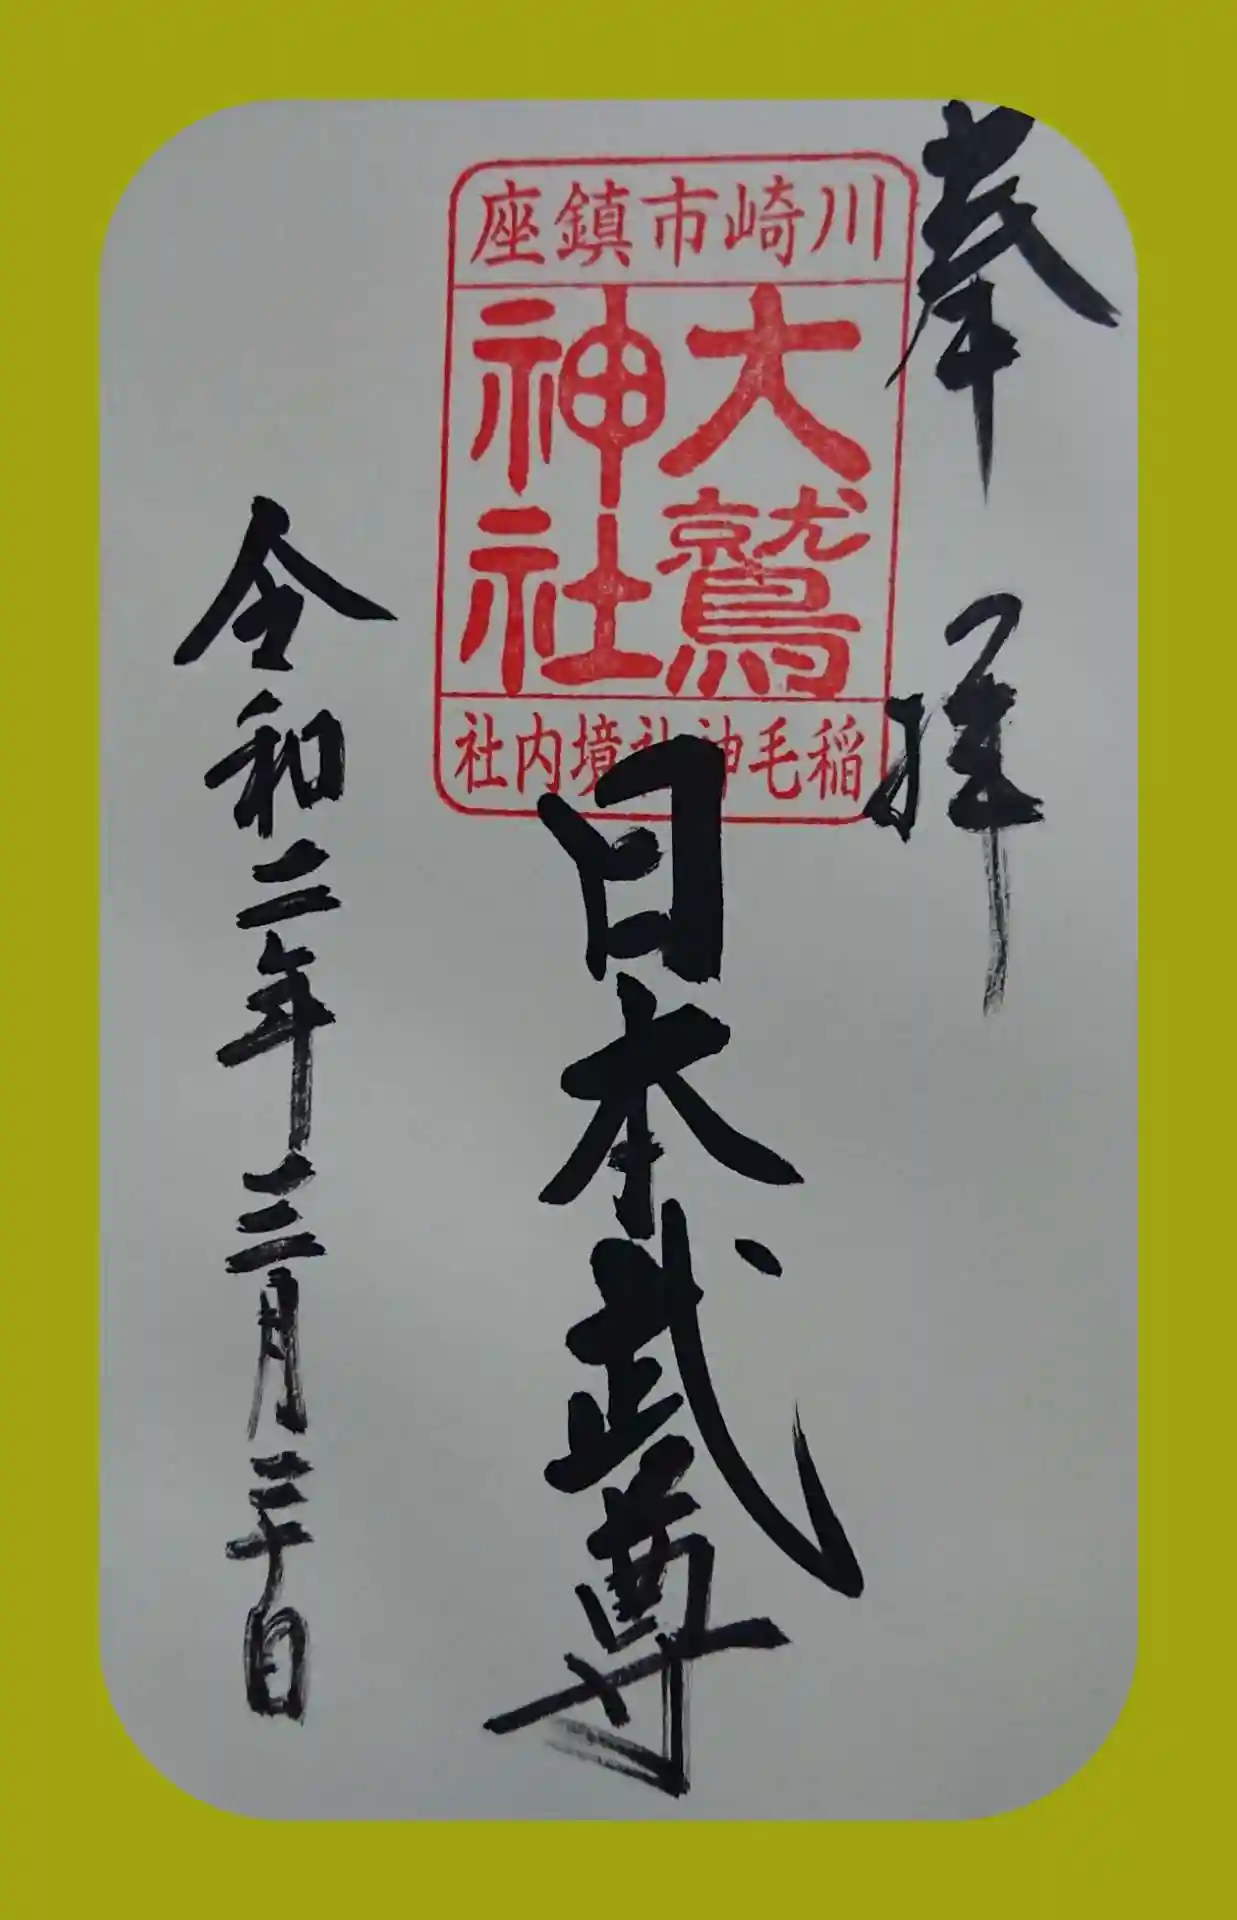 奉拝
川崎市鎮座
大鷲
神社
稲毛神社境内社
日本武尊
令和二年三月二十日